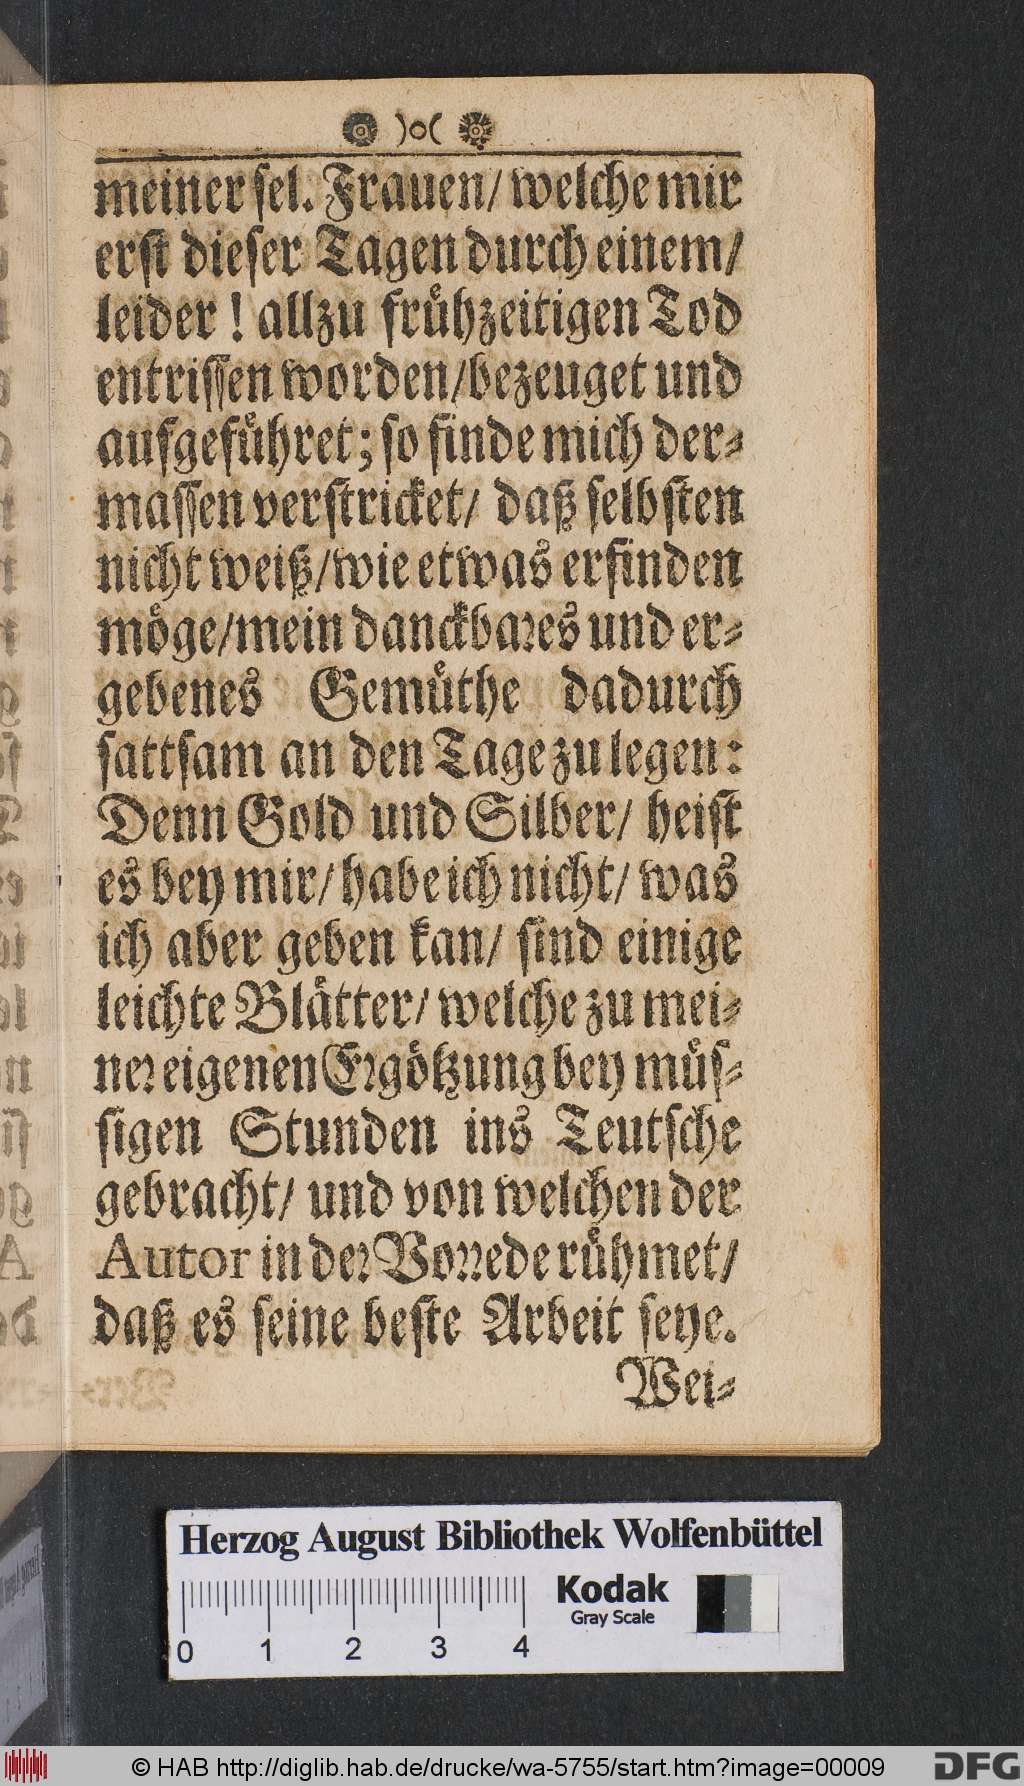 )o(
meiner sel. Frauen/ welche mir
erst dieser Tagen durch einem/
leider! allzu frühzeitigen Tod
entrissen worden/ bezeuget und
aufgeführet; so finde mich der-
massen verstricket/ daß selbsten
nicht weiß/ wie etwas erfinden
möge/ mein danckbares und er-
gebenes Gemüthe dadurch
sattsam an den Tage zu legen:
Denn Gold und Silber/ heist
es bey mir/ habe ich nicht/ was
ich aber geben kan/ sind einige
leichte Blätter/ welche zu mei-
ner eigenen Ergötzung bey müs-
sigen Stunden ins Teutsche
gebracht/ und von welchen der
Autor in der Vorrede rühmet/
daß es seine beste Arbeit seye.
Wei-
Herzog August Bibliothek Wolfenbüttel
Kodak
Gray Scale
0 1 2 3 4
© HAB http://diglib.hab.de/drucke/wa-5755/start.htm?image=00009
DFG